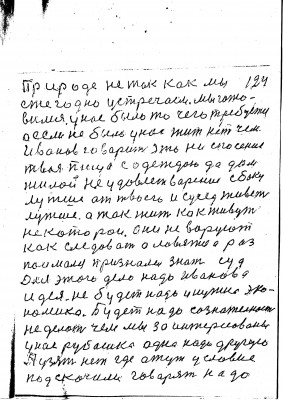 Природе не так как мы 124
ежегодно устречаем. мы гото-
вимся, у нас было то чего требуется
а если не было у нас жит нет чем
Иванов говарит это ни спосение
твая пища с одеждаю да дом
жилой не удовлетварение сбоку
лутше от твоего и сусед живет
лутше. а так жит как живут
некоторои. они не варуют
как следоват а ловят
поимали признали знат суд
Для этого дело надо Иванова
идея. не будет надо и нужна эко-
номика. Будет надо сознателност
не делат чем мы заинтересованы
у нас рубашка одна надо другую
нет где
подскочили говарят надо